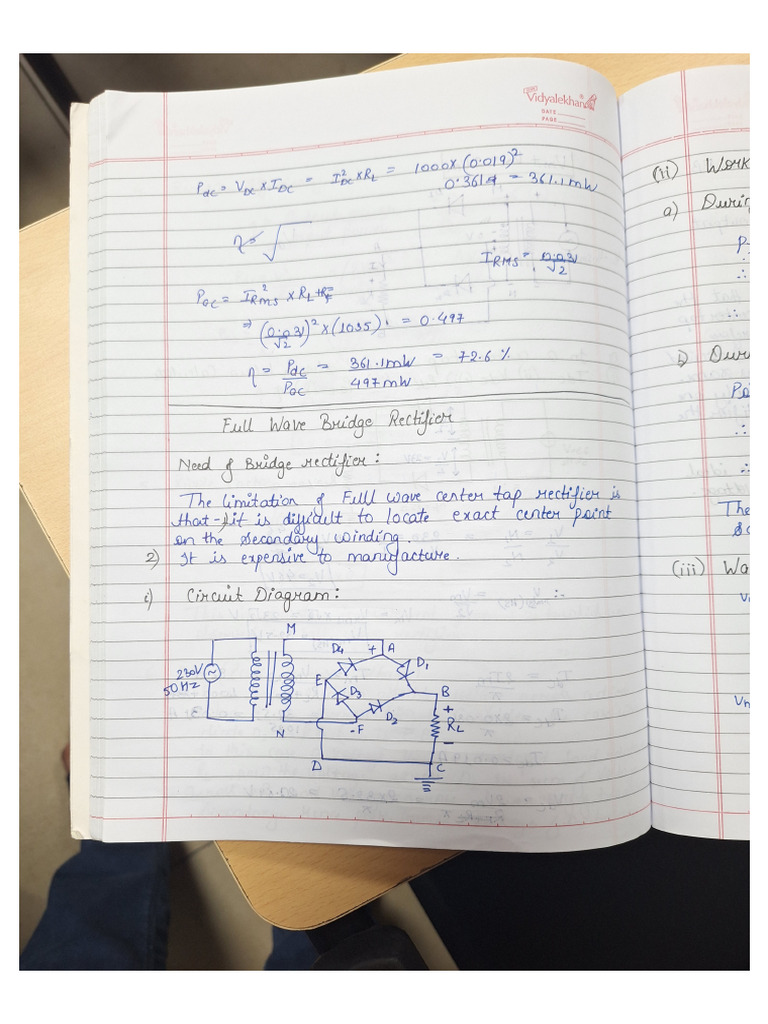 Vidyalekhan
DATE
PAGE
P_dc = V_DC x I_DC = I²_DC x R_L = 1000 x (0.019)²
0.3619 = 361.1 mW
η =
I_RMS = 0.031/√2
P_ac = I_RMS² x R_L
⇒ (0.031/√2)² x (1035) = 0.497
η = P_dc/P_ac = 361.1mW/497mW = 72.6 %
Full Wave Bridge Rectifier
Need of Bridge rectifier :
The limitation of Full wave center tap rectifier is
that -1) it is difficult to locate exact center point
on the secondary winding.
2) It is expensive to manufacture.
i) Circuit Diagram :
M
D4 + A
D1
230V
50Hz
E
D3
B
+
D2
R_L
N
-F
-
D
C
(ii) Work
a) Durin
∴
∴
∴
b) Duri
Po
∴
∴
The
(iii) Wa